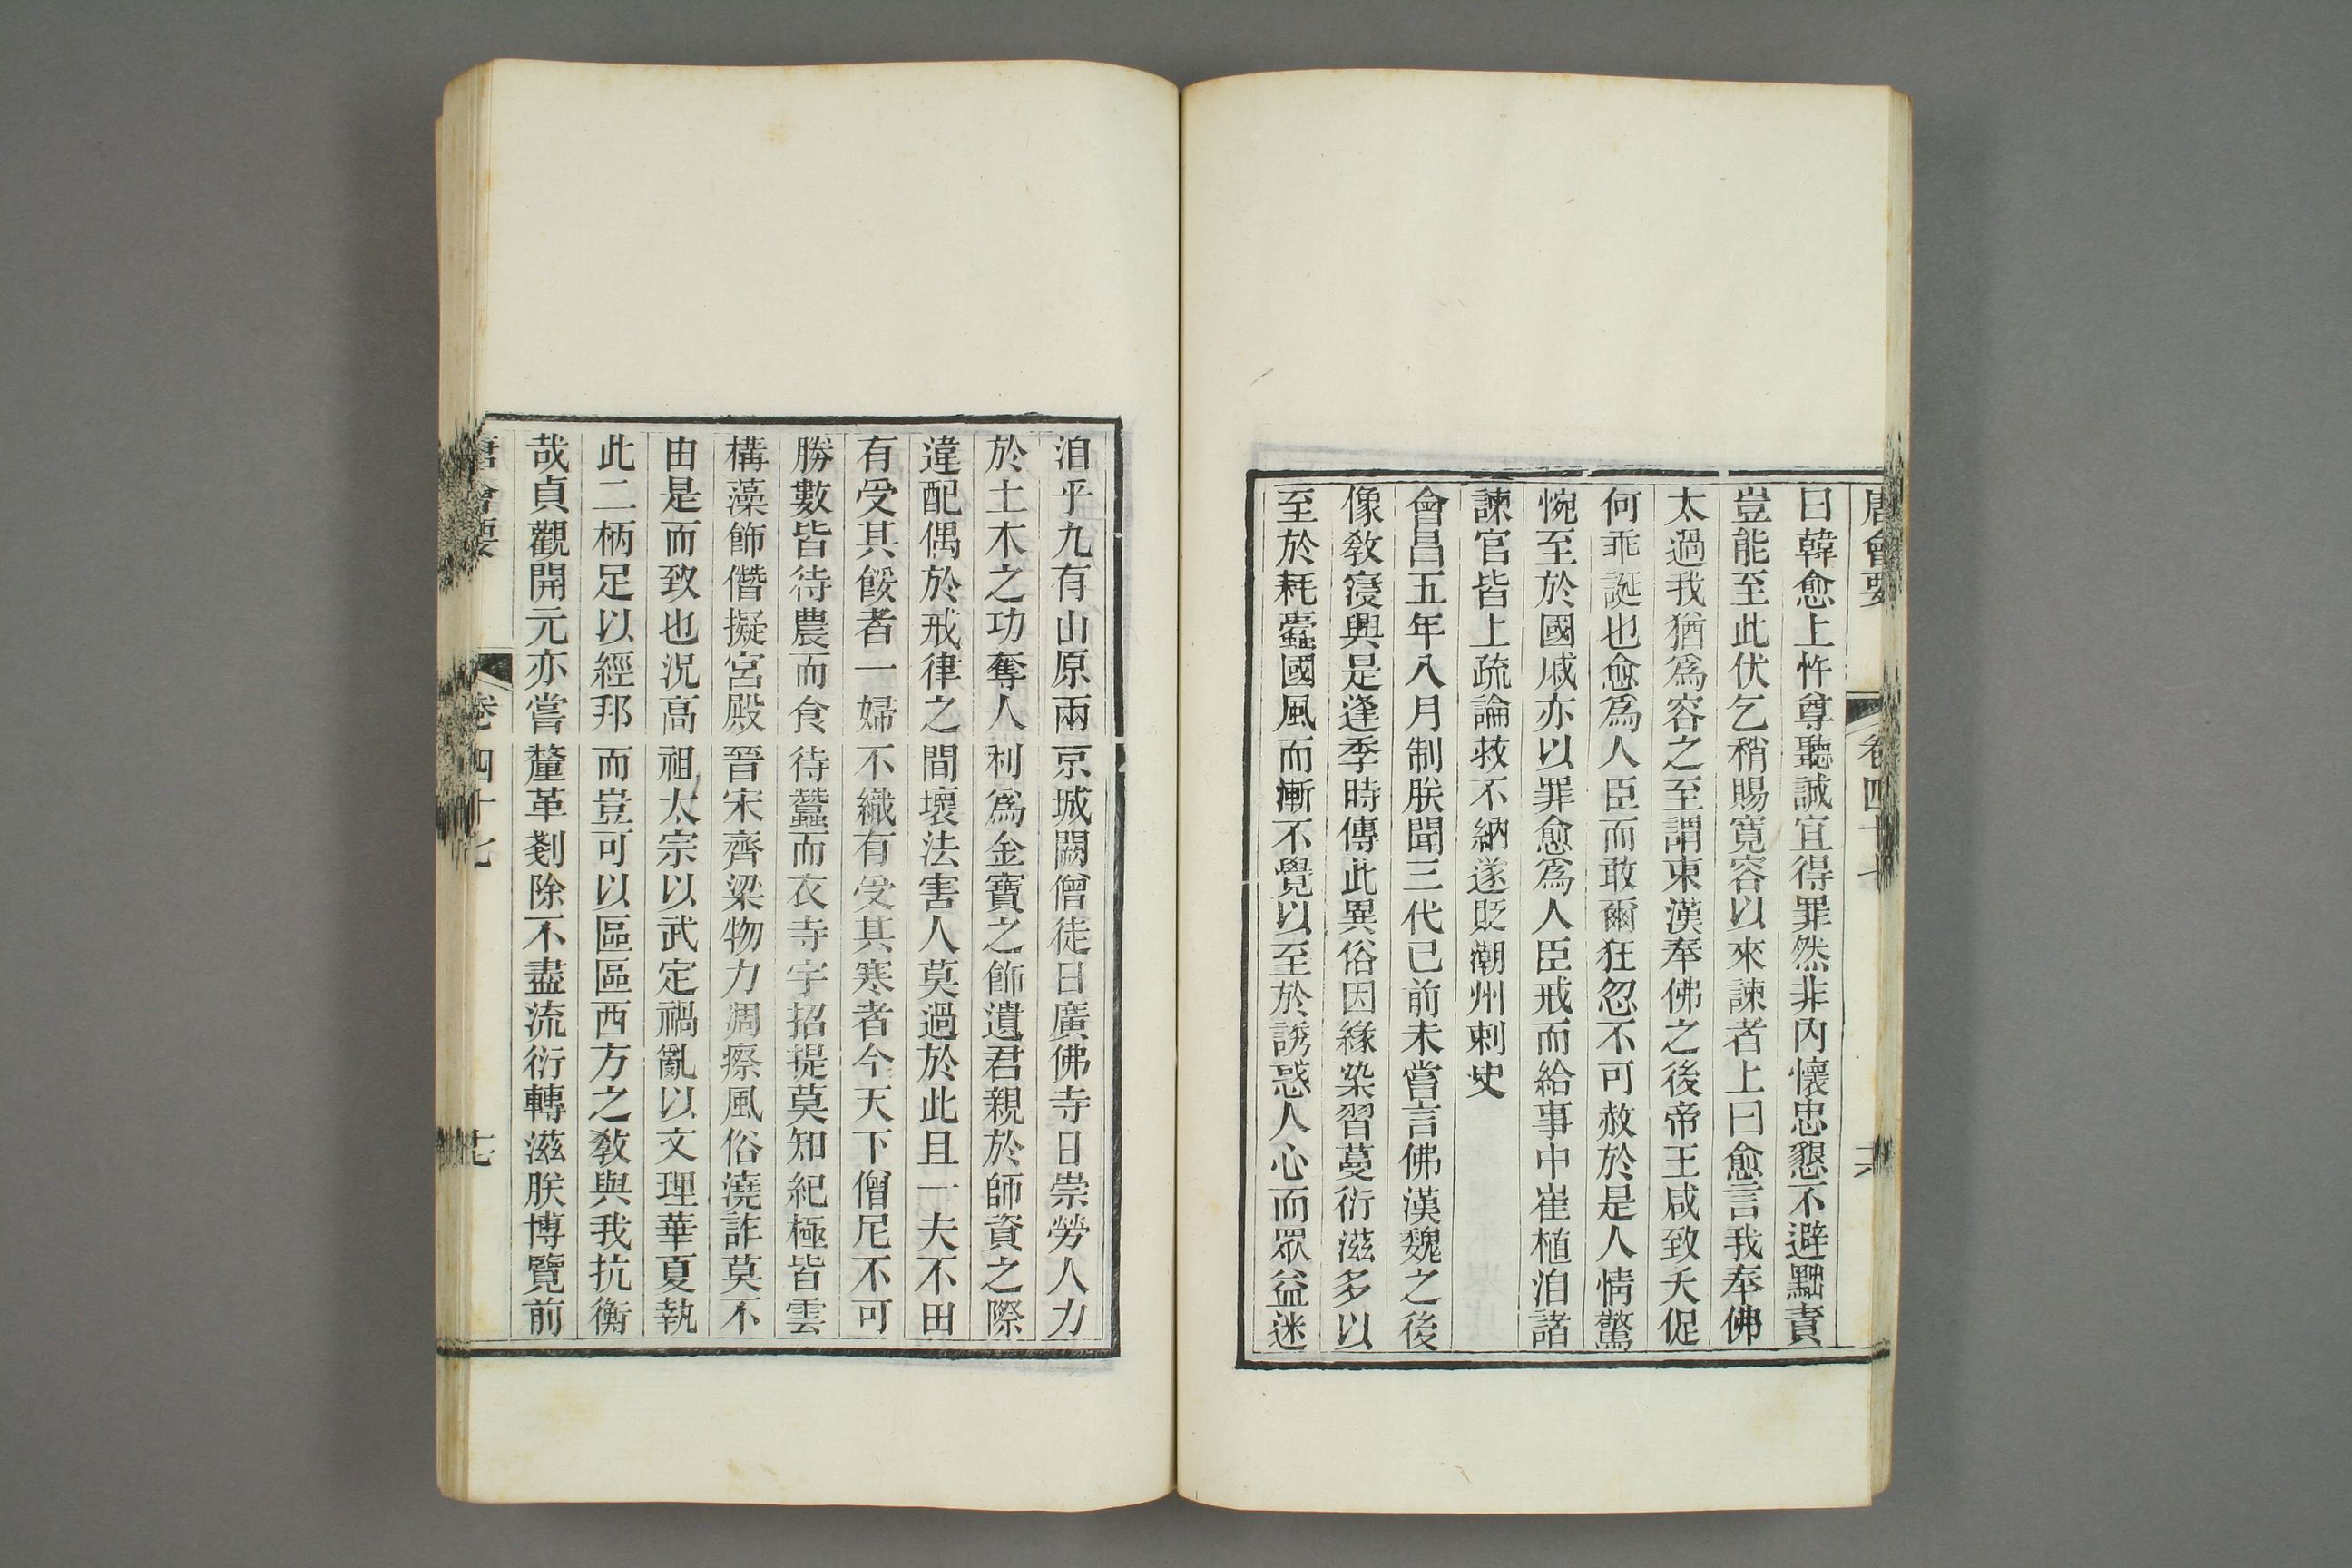 唐會要 卷四十七 十六
曰韓愈上忤尊聽誠宜得罪然非內懷忠懇不避黜責
豈能至此伏乞稍賜寬容以來諫者上曰愈言我奉佛
太過我猶爲容之至謂東漢奉佛之後帝王咸致夭促
何乖誕也愈爲人臣而敢爾狂忽不可赦於是人情驚
惋至於國戚亦以罪愈爲人臣戒而給事中崔植洎諸
諫官皆上疏論救不納遂貶潮州刺史
會昌五年八月制朕聞三代已前未嘗言佛漢魏之後
像敎寖興是逢季時傳此異俗因緣染習蔓衍滋多以
至於耗蠹國風而漸不覺以至於誘惑人心而眾益迷
洎乎九有山原兩京城闕僧徒日廣佛寺日崇勞人力
於土木之功奪人利爲金寶之飾遺君親於師資之際
違配偶於戒律之間壞法害人莫過於此且一夫不田
有受其餒者一婦不織有受其寒者今天下僧尼不可
勝數皆待農而食待蠶而衣寺宇招提莫知紀極皆雲
構藻飾僭擬宮殿晉宋齊梁物力凋瘵風俗澆詐莫不
由是而致也況高祖太宗以武定禍亂以文理華夏執
此二柄足以經邦而豈可以區區西方之敎與我抗衡
哉貞觀開元亦嘗釐革剗除不盡流衍轉滋朕博覽前
唐會要 卷四十七 十七